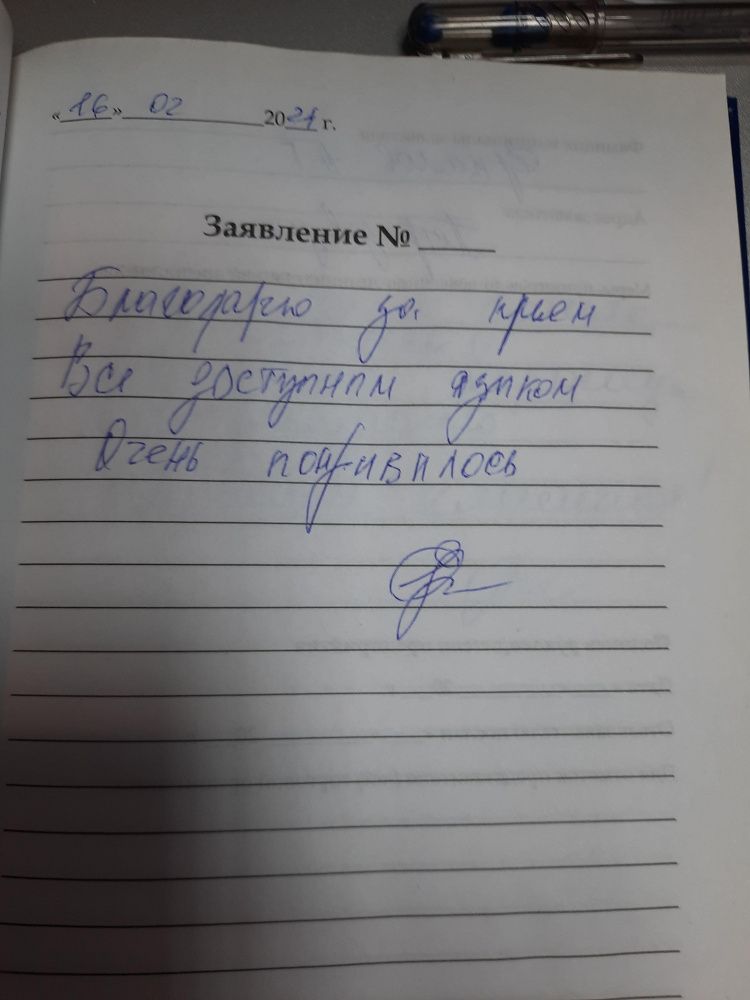 «16» 02 2021 г.
Заявление № ______
Благодарю за прием
Все доступным языком
Очень понравилось